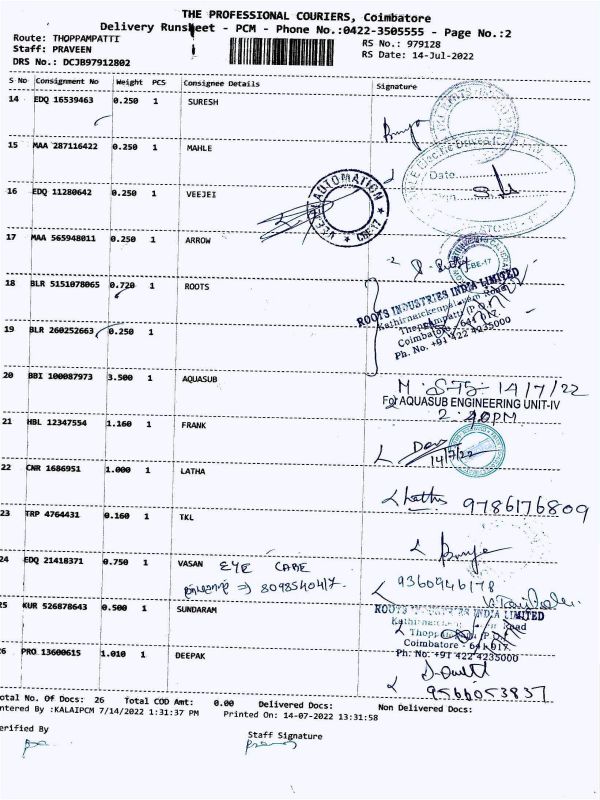 THE PROFESSIONAL COURIERS, Coimbatore
Delivery Runsheet - PCM - Phone No.:0422-3505555 - Page No.:2
Route: THOPPAMPATTI
RS No.: 979128
Staff: PRAVEEN
RS Date: 14-Jul-2022
DRS No.: DCJB97912802
S No Consignment No Weight PCS Consignee Details Signature
14 EDQ 16539463 0.250 1 SURESH
15 MAA 287116422 0.250 1 MAHLE
Date
16 EDQ 11280642 0.250 1 VEEJEI
AUTOMATION
CBE-17
17 MAA 565948011 0.250 1 ARROW
CBE-17
18 BLR 5151078065 0.720 1 ROOTS
ROOTS INDUSTRIES INDIA LIMITED
Kathirnaickenpalayam Road
Thoppampatti (P.O)
Coimbatore - 641 017.
Ph. No. +91 422 4235000
19 BLR 260252663 0.250 1
20 BBI 100087973 3.500 1 AQUASUB
14/7/22
For AQUASUB ENGINEERING UNIT-IV
21 HBL 12347554 1.160 1 FRANK
14/7/22
22 CNR 1686951 1.000 1 LATHA
Latha 9786176809
23 TRP 4764431 0.160 1 TKL
24 EDQ 21418371 0.750 1 VASAN EYE CARE
8098540417
9360946178
25 KUR 526878643 0.500 1 SUNDARAM
ROOTS INDUSTRIES INDIA LIMITED
Road
Coimbatore - 641 017.
Ph. No. +91 422 4235000
26 PRO 13600615 1.010 1 DEEPAK
9566053837
Total No. Of Docs: 26 Total COD Amt: 0.00 Delivered Docs: Non Delivered Docs:
Entered By :KALAIPCM 7/14/2022 1:31:37 PM Printed On: 14-07-2022 13:31:58
Verified By
Staff Signature